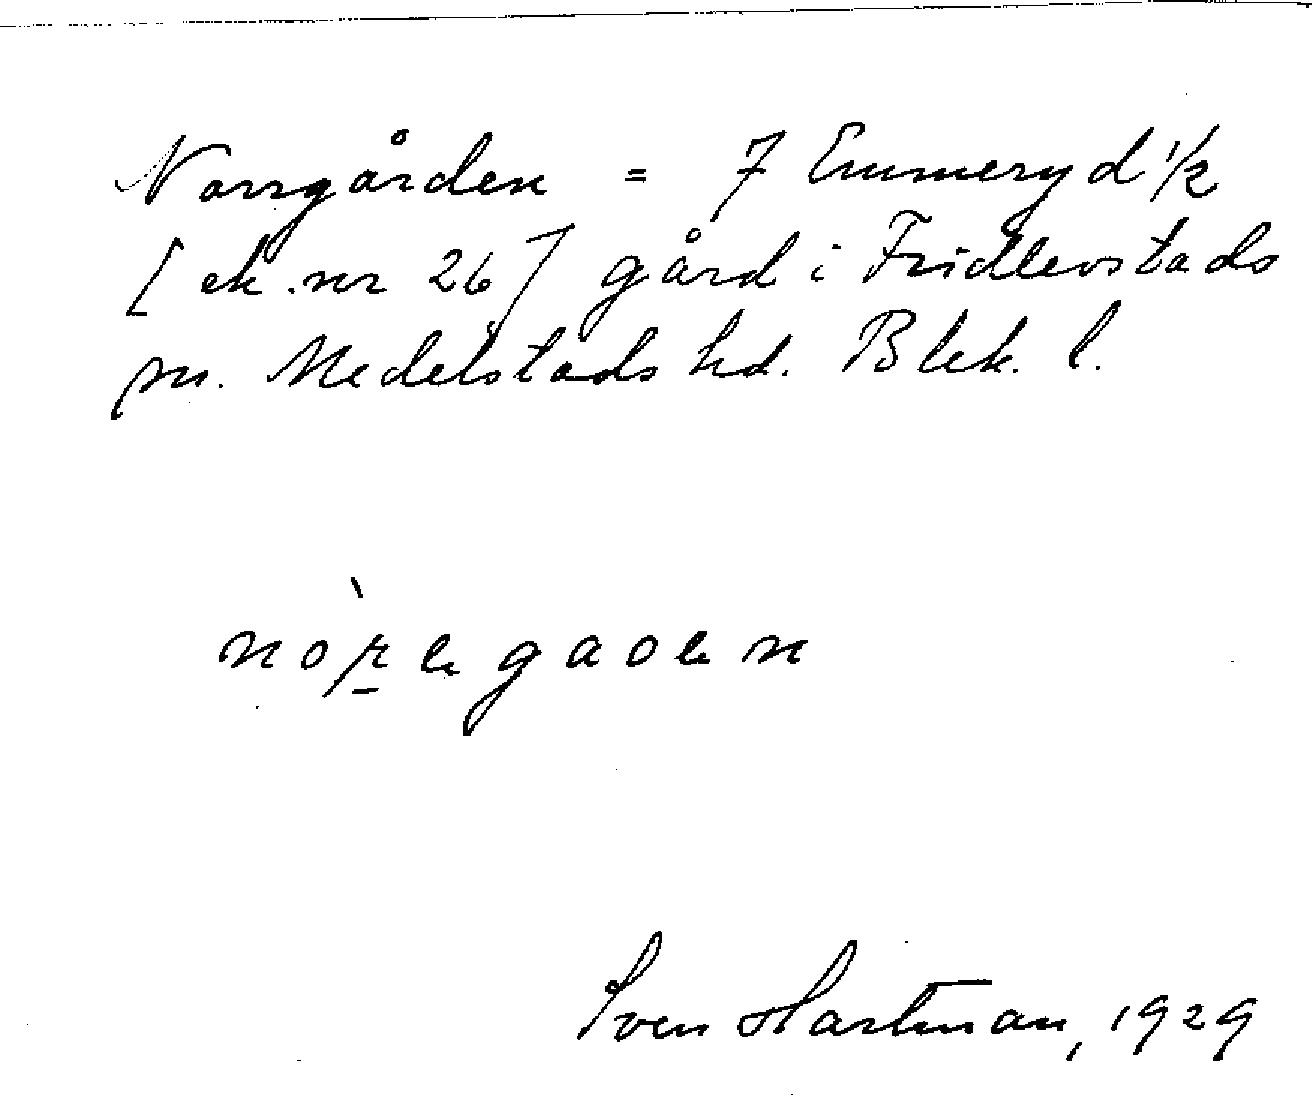 Norrgården = 7 Emmeryd 1/2
[ek. nr 26] gård i Fridlevstads
sn. Medelstads hd. Blek. l.
nòr̲egaoen
Sven Hartman, 1929